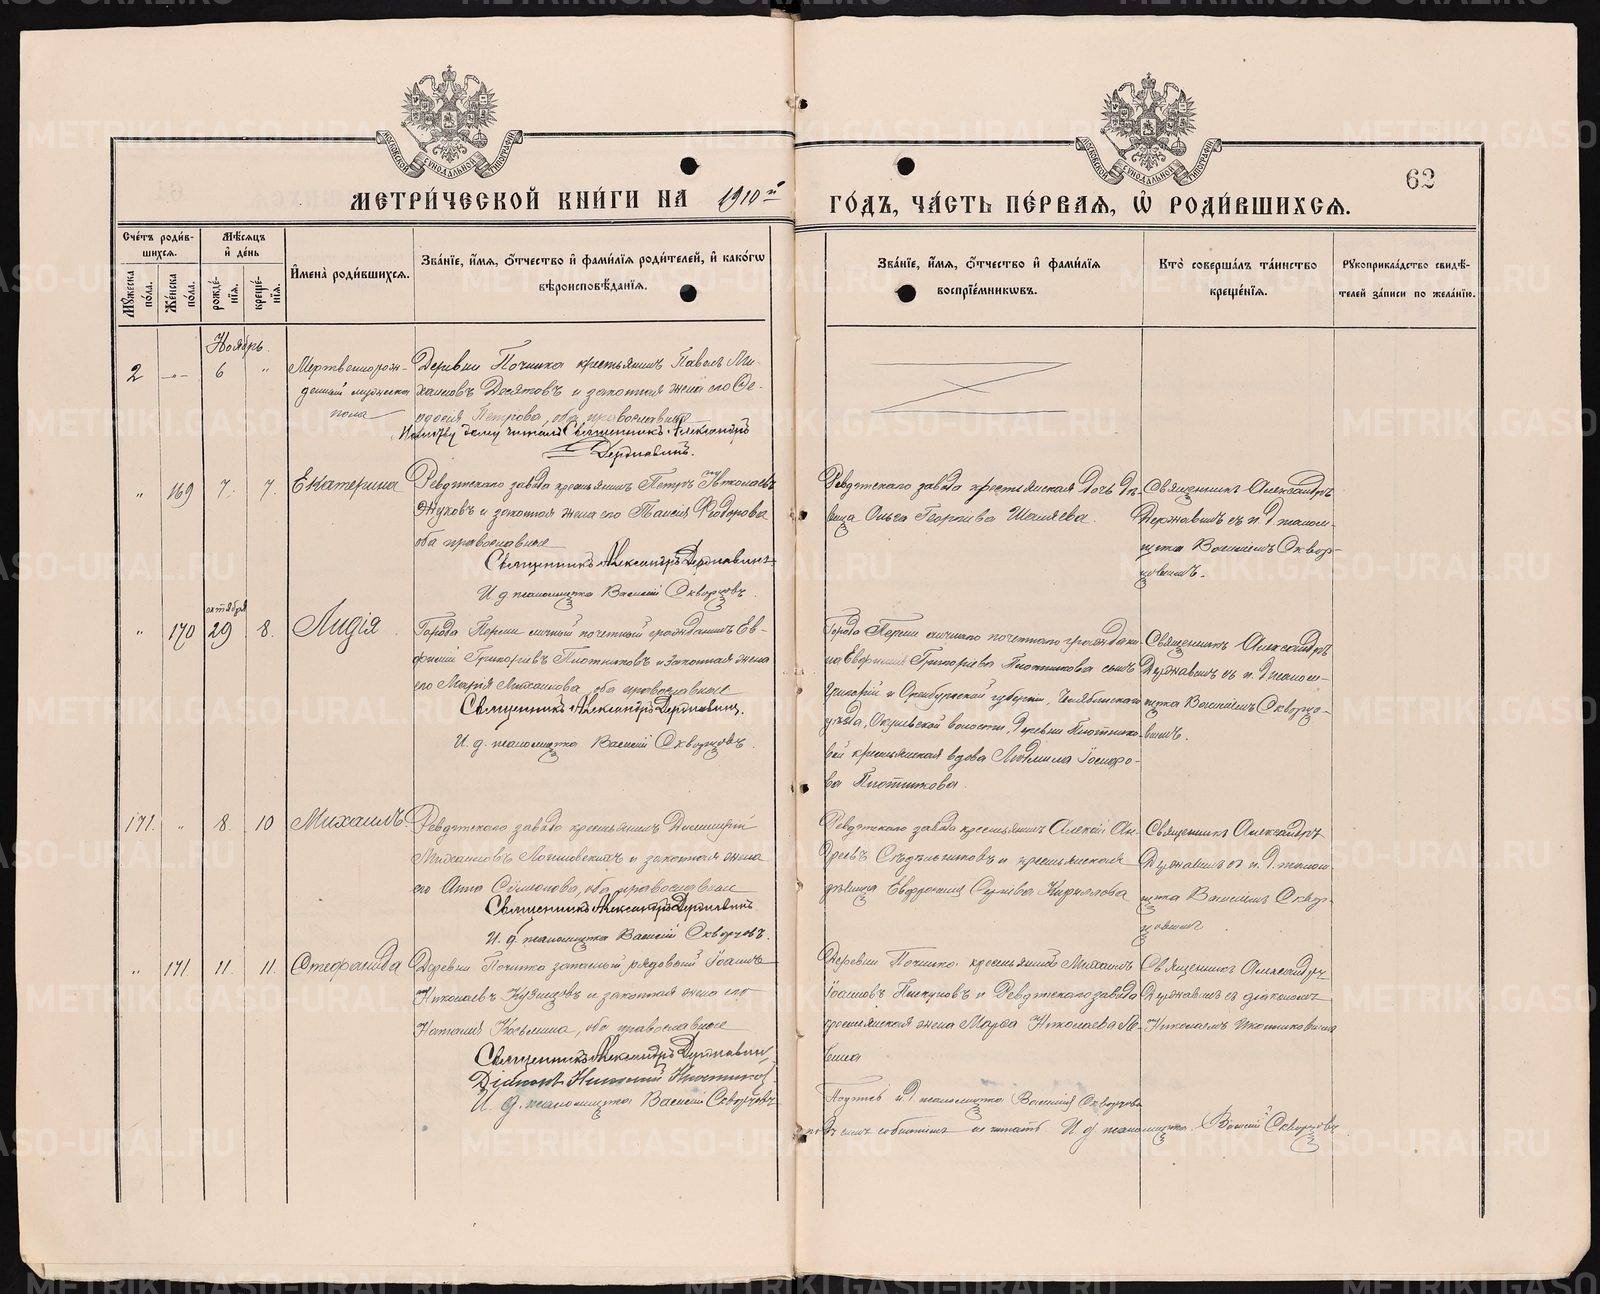 МЕТРИ́ЧЕСКОЙ КНИ́ГИ НА 1910й
ГО́ДЪ, ЧА́СТЬ ПЕ́РВАЯ, Ѡ҆ РОДИ́ВШИХСЯ.
62
МОСКОВСКОЙ СѴНОДАЛЬНОЙ ТИПОГРАФІИ
МОСКОВСКОЙ СѴНОДАЛЬНОЙ ТИПОГРАФІИ
Сче́тъ роди́в-
шихся.
Мѣ́сяцъ
и҆ де́нь
Мꙋ́жеска
по́ла.
Же́нска
по́ла.
рожде́-
нія.
креще́-
нія.
И҆мена̀ роди́вшихся.
Зва́ніе, и҆́мя, ѻ҆́тчество и҆ фами́лія роди́телей, и҆ како́гѡ
вѣроисповѣ́данія.
Зва́ніе, и҆́мя, ѻ҆́тчество и҆ фами́лія
воспріе́мникѡвъ.
Кто̀ соверша́лъ та́инство
креще́нія.
Рꙋкоприкла́дство свидѣ́-
телей за́писи по жела́нію.
Ноябрь.
2 -"- 6 "
Мертворожден-
денный мужеска
пола
Деревни Починка крестьянинъ Павелъ Ми-
хаиловъ Десятовъ и законная жена его Ѳе-
досія Петрова, оба православные
Молитву дому читалъ Священникъ Александръ
Державинъ.
" 169 7. 7.
Екатерина
Ревдинскаго завода крестьянинъ Петръ Николаевъ
Жуковъ и законная жена его Таисія Ѳеодорова
оба православные
Священникъ Александръ Державинъ
И. д. псаломщика Василій Скворцовъ.
Ревдинскаго завода крестьянская дочь дѣ-
вица Ольга Георгіева
Священникъ Александръ
Державинъ съ и. д. псалом-
щика Василіемъ Сквор-
цовымъ.
октября
" 170 29 8.
Лидія
Города Перми личный почетный гражданинъ Ев-
фимій Григорьевъ Плотниковъ и законная жена
его Марія Михаилова, оба православные
Священникъ Александръ Державинъ.
И. д. псаломщика Василій Скворцовъ.
Города Перми личнаго почетнаго граждани-
на Евфимія Григорьева Плотникова сынъ
Григорій и Оренбургской губерніи, Челябинскаго
уѣзда, Окуневской волости, деревни Плотнико-
вой крестьянская вдова Людмила
ва Плотникова.
Священникъ Александръ
Державинъ съ и. д. псалом-
щика Василіемъ Скворцо-
вымъ.
171. " 8. 10
Михаилъ.
Ревдинскаго завода крестьянинъ Димитрій
Михаиловъ Логиновскихъ и законная жена
его Анна Симеонова, оба православные
Священникъ Александръ Державинъ
И. д. псаломщика Василій Скворцовъ.
Ревдинскаго завода крестьянинъ Алексій Ан-
дреевъ Сѣдельниковъ и крестьянская
дѣвица Евфросинія Кириллова
Священникъ Александръ
Державинъ съ и. д. псалом
щика Василіемъ Сквор-
цовымъ
" 171 11. 11.
Стефанида
Деревни Починка запасный рядовой Іоаннъ
Николаевъ Кузнецовъ и законная жена его
Наталія Косьмина, оба православные
Священникъ Александръ Державинъ
Діаконъ Николай
И. д. псаломщика Василій Скворцовъ
Деревни Починка крестьянинъ Михаилъ
Іоанновъ Пискуновъ и Ревдинскаго завода
крестьянская жена Марѳа Николаева
Священникъ Александръ
Державинъ съ діакономъ
Николаемъ
Подпись и. д. псаломщика Василія Скворцова
подъ симъ событіемъ не читать. И. д. псаломщика. Василій Скворцовъ
METRIKI.GASO-URAL.RU